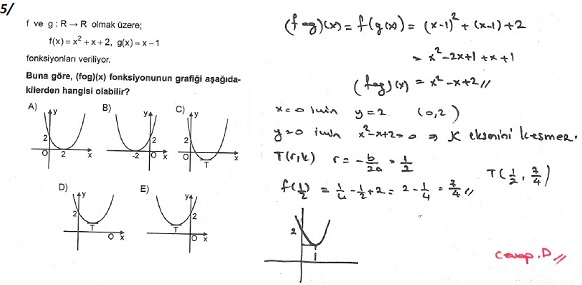 5/
f ve g : R → R olmak üzere;
f(x) = x² + x + 2, g(x) = x − 1
fonksiyonları veriliyor.
Buna göre, (fog)(x) fonksiyonunun grafiği aşağıda-
kilerden hangisi olabilir?
A) B) C)
y 2 O 2 x
y 2 -2 O x
y 2 O T x
D) E)
y 2 T O x
y 2 T O x
(fog)(x) = f(g(x)) = (x-1)² + (x-1) + 2
= x² - 2x + 1 + x + 1
(fog)(x) = x² - x + 2 //
x=0 için y=2 (0,2)
y=0 için x²-x+2=0 ⇒ X eksenini kesmez.
T(r,k) r = -b/2a = 1/2
T(1/2, 3/4)
f(1/2) = 1/4 - 1/2 + 2 = 2 - 1/4 = 3/4 //
2
1
Cevap. D //